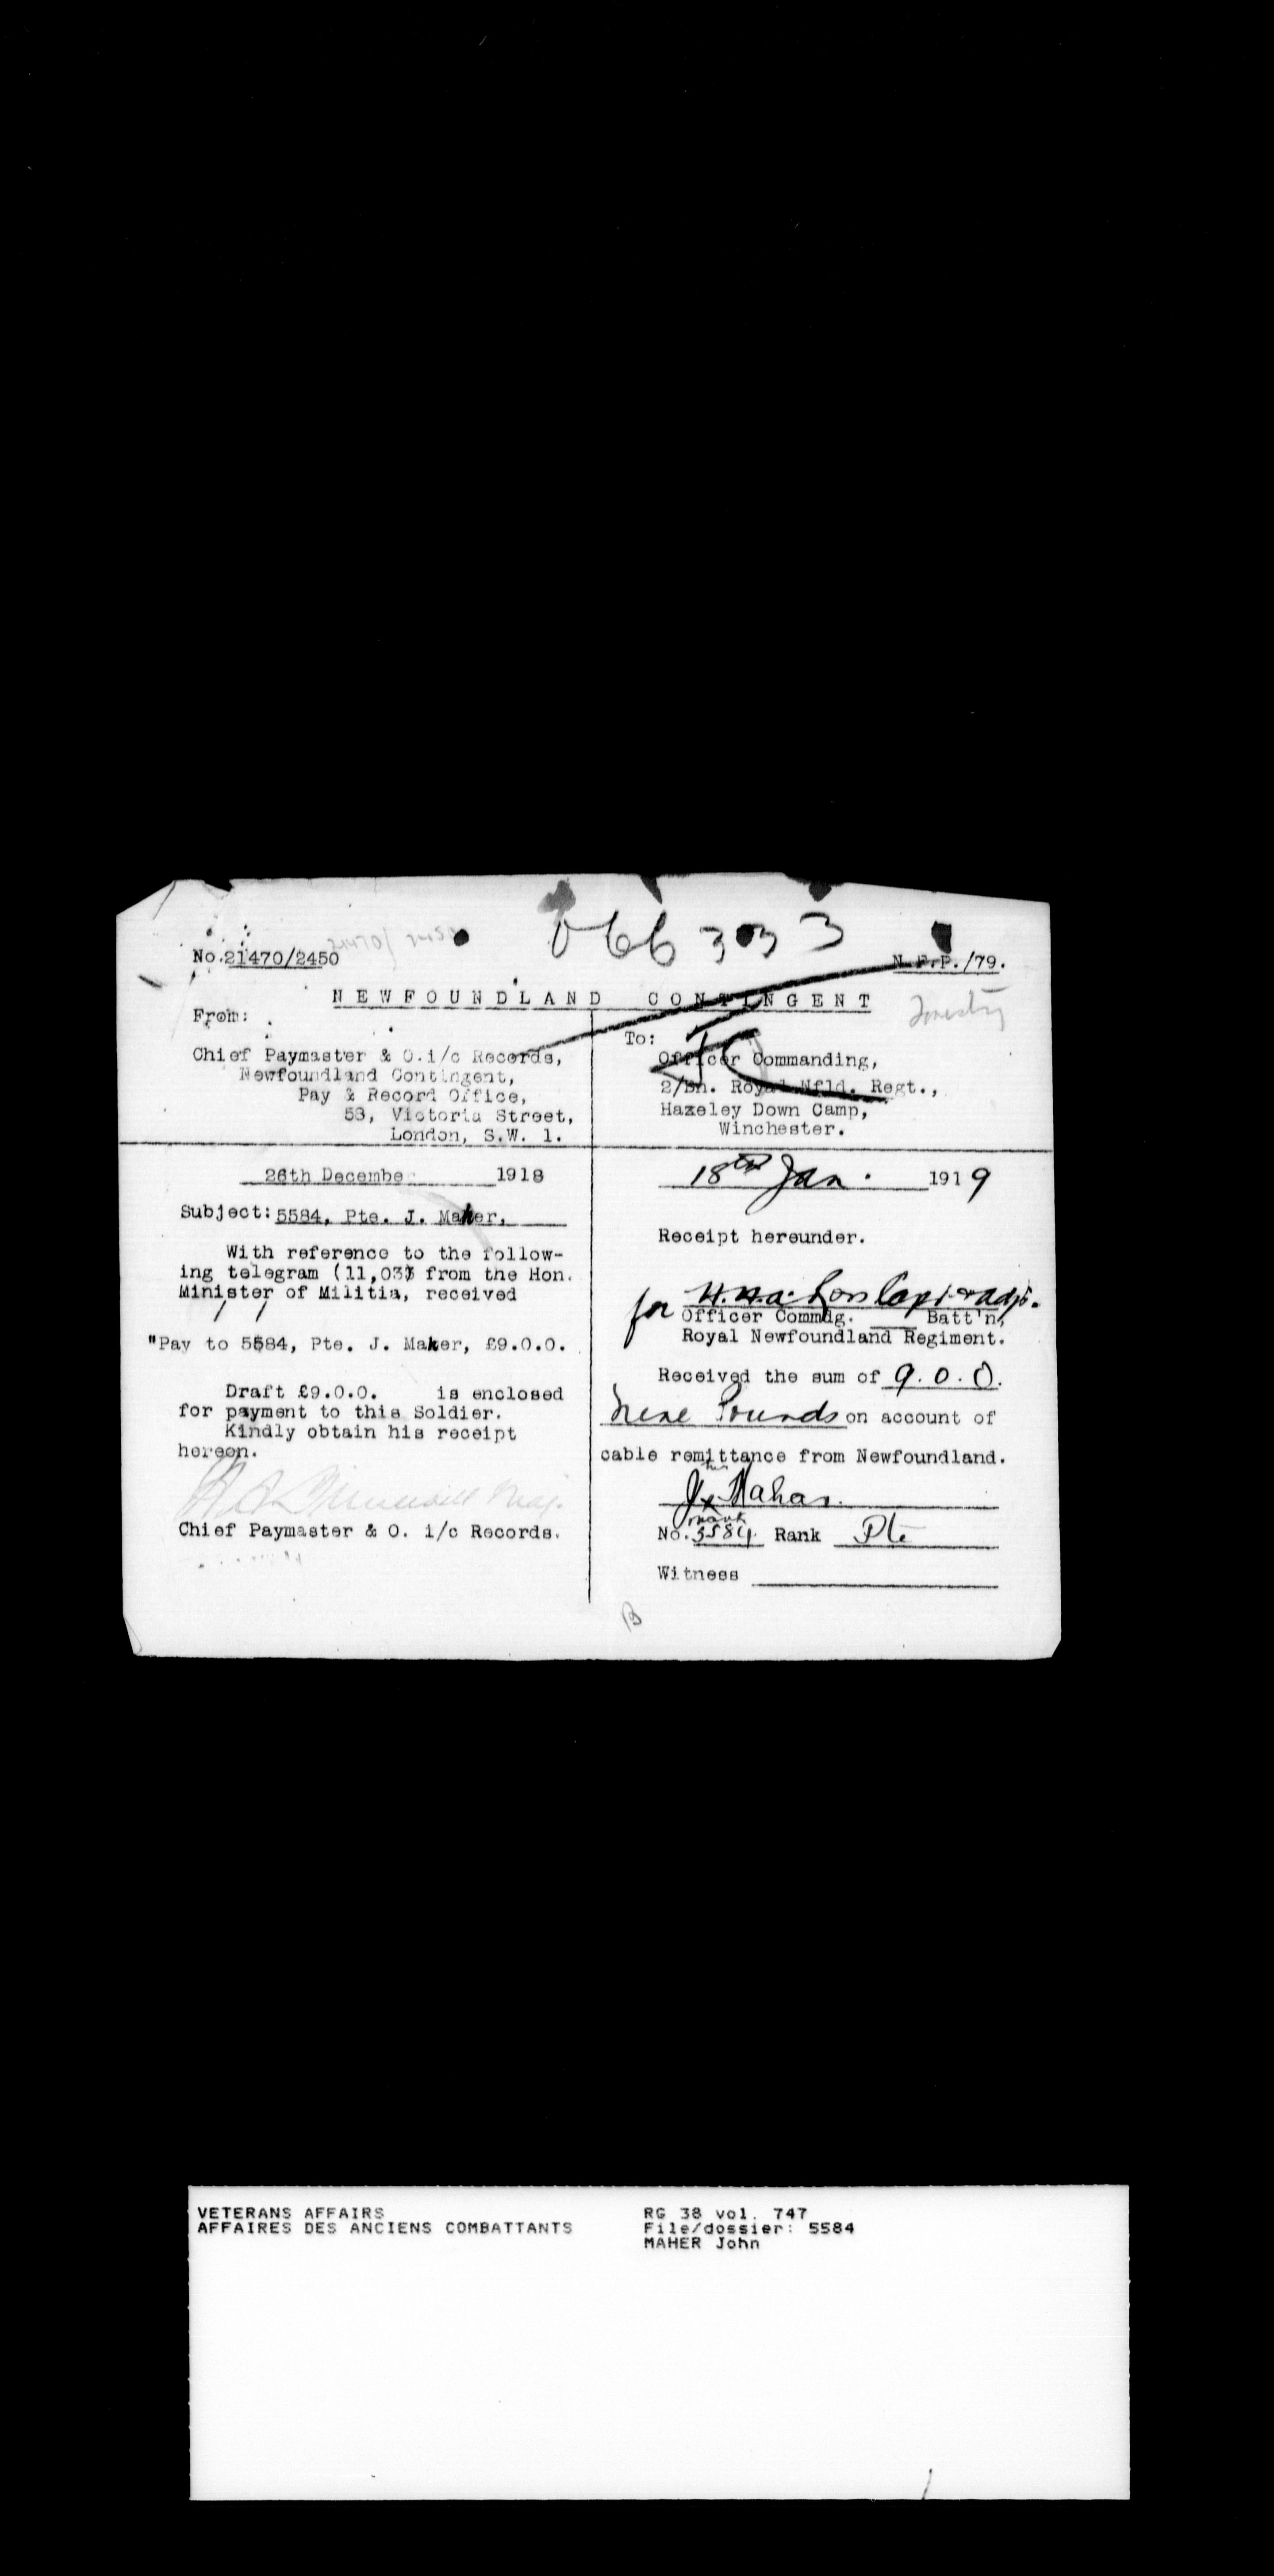 066333
No.21470/2450
21470/ 2450
N.F.P./79.
NEWFOUNDLAND CONTINGENT
From:
Chief Paymaster & O.i/c Records,
Newfoundland Contingent,
Pay & Record Office,
58, Victoria Street,
London, S.W. 1.
To:
Officer Commanding,
2/Bn. Royal Nfld. Regt.,
Hazeley Down Camp,
Winchester.
26th Decembe 1918
Subject: 5584, Pte. J. Maher,
With reference to the follow-
ing telegram (11,03) from the Hon.
Minister of Militia, received
"Pay to 5584, Pte. J. Maher, £9.0.0.
Draft £9.0.0. is enclosed
for payment to this Soldier.
Kindly obtain his receipt
hereon.
Chief Paymaster & O. i/c Records.
18th Jan. 1919
Receipt hereunder.
for Capt & Adjt.
Officer Commdg. Batt'n,
Royal Newfoundland Regiment.
Received the sum of 9.0.0.
Nine Pounds on account of
cable remittance from Newfoundland.
his
J x Mahar
mark
No. 5584 Rank Pte
Witness
B
VETERANS AFFAIRS
AFFAIRES DES ANCIENS COMBATTANTS
RG 38 vol. 747
File/dossier: 5584
MAHER John